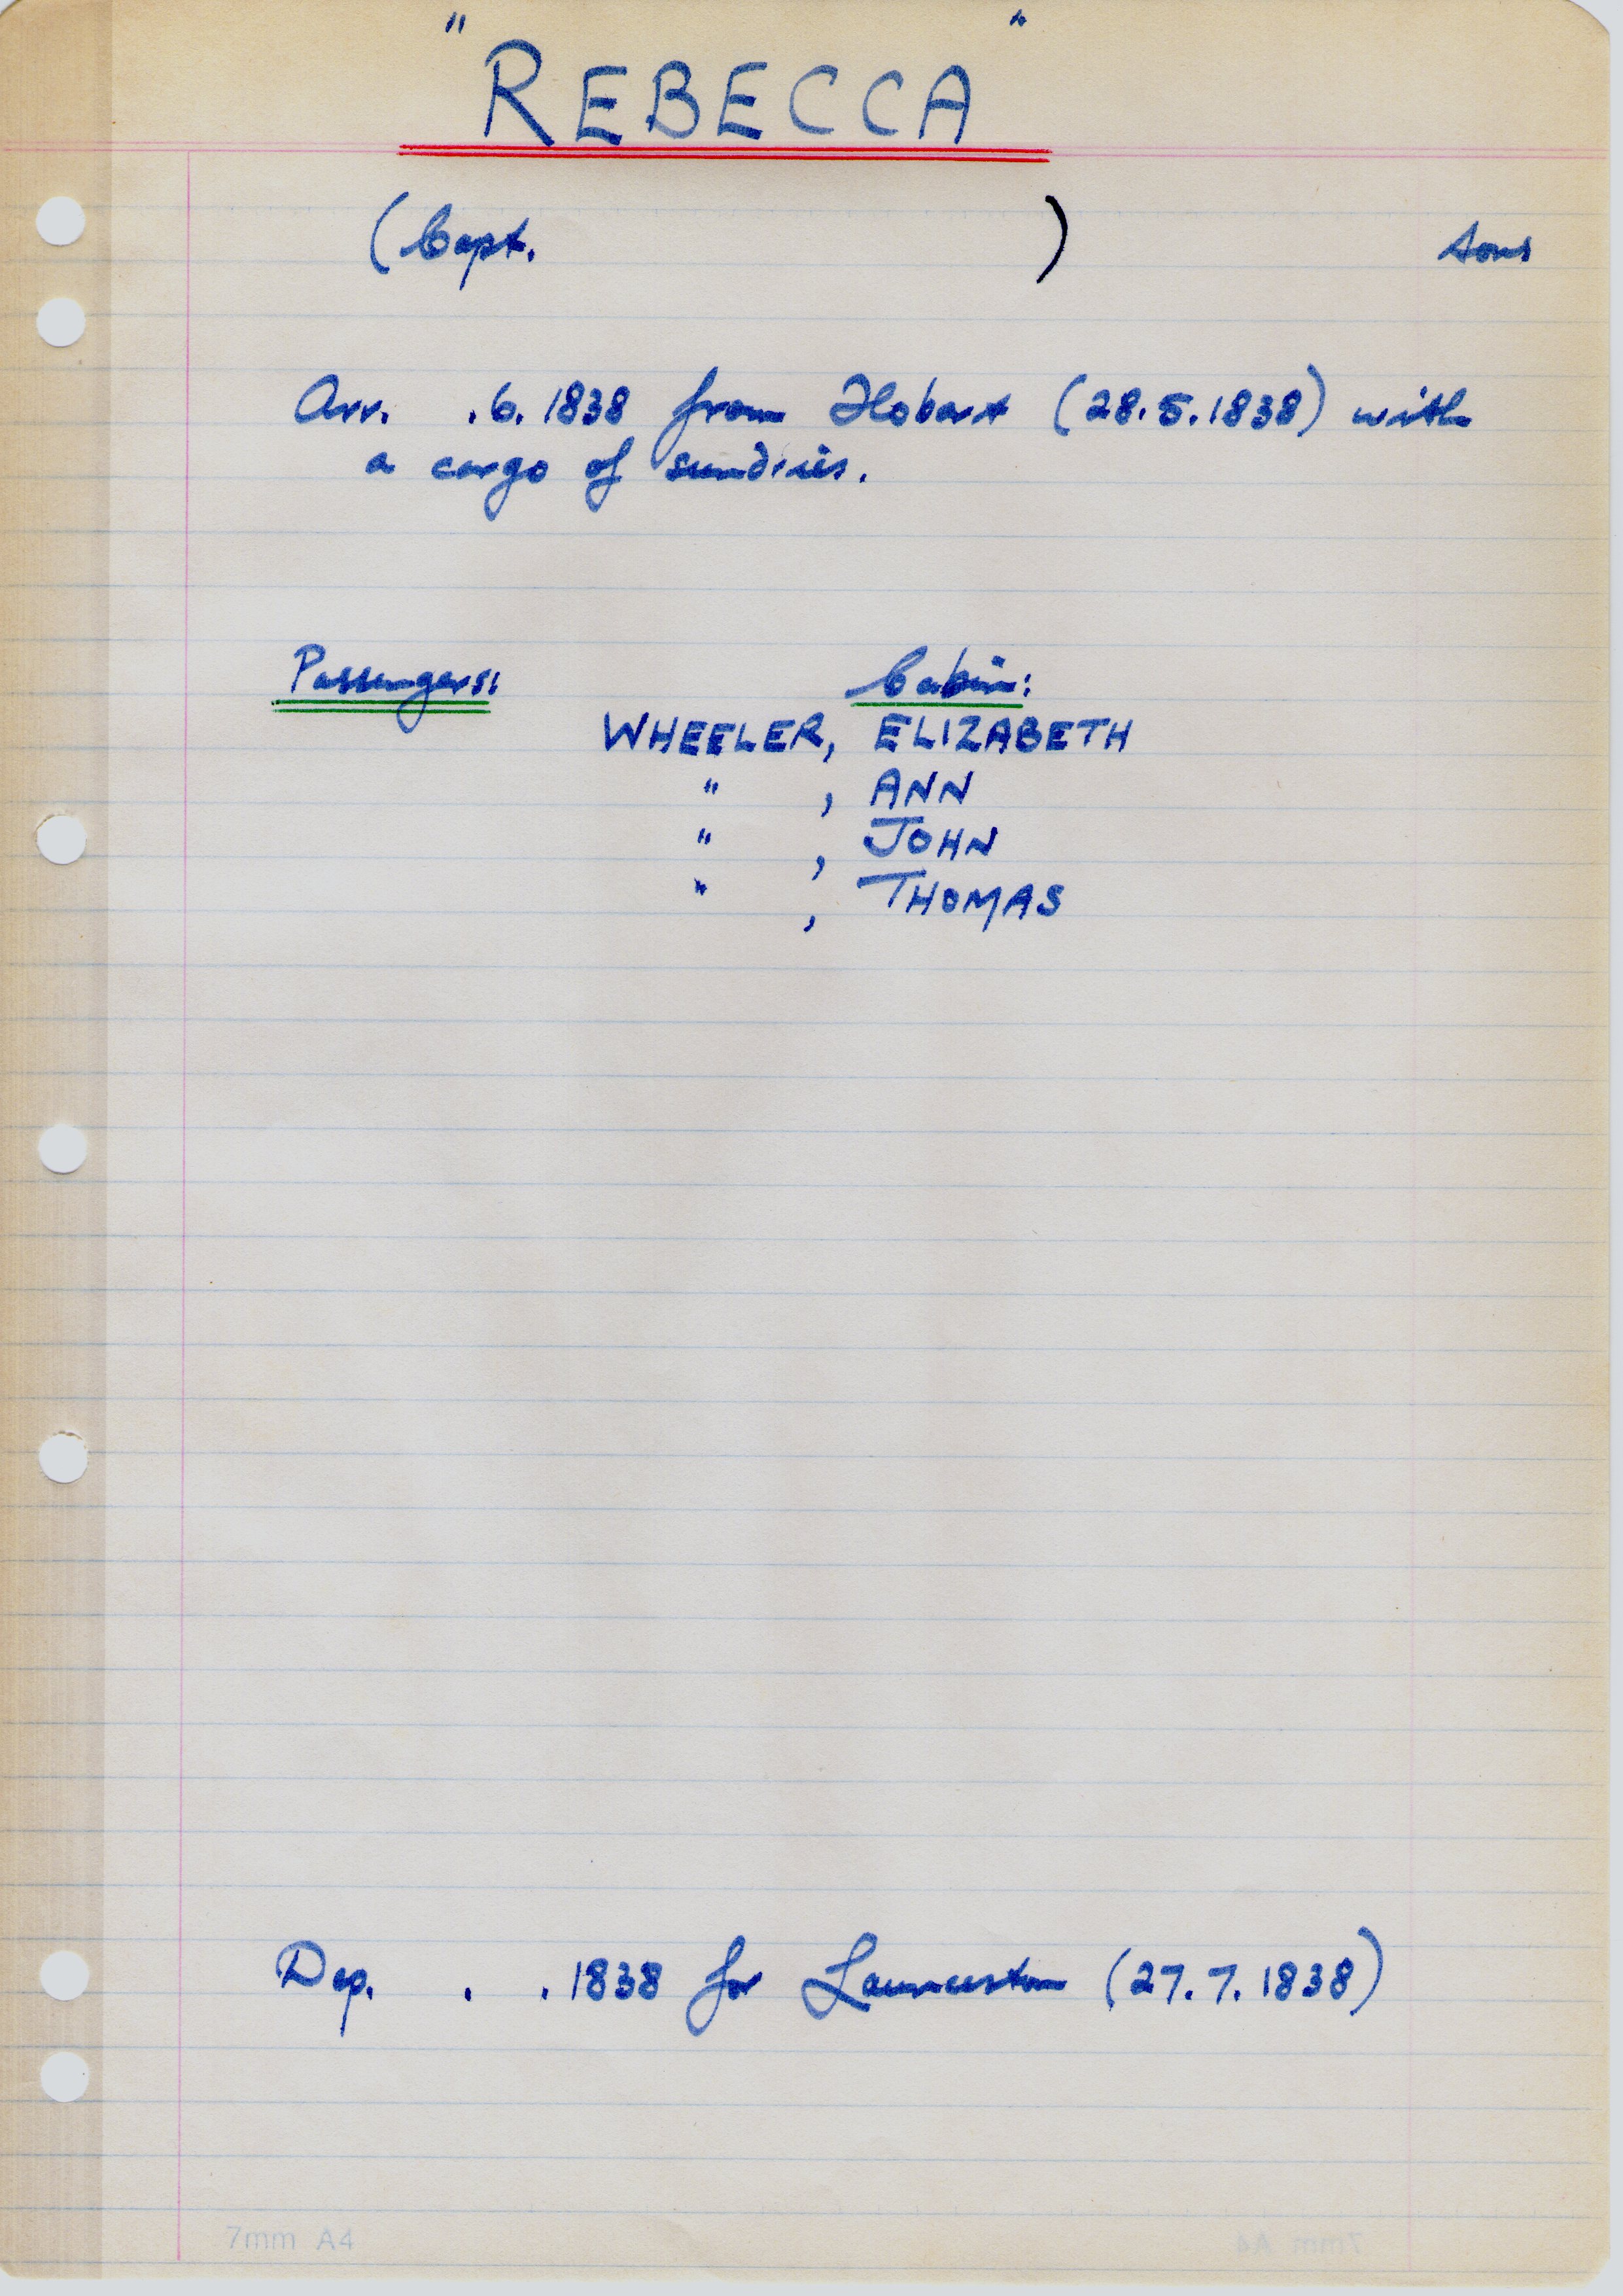 "REBECCA"
(Capt. ) tons
Arr. .6.1838 from Hobart (28.5.1838) with
a cargo of sundries.
Passengers: Cabin:
WHEELER, ELIZABETH
" , ANN
" , JOHN
" , THOMAS
Dep. . .1838 for Launceston (27.7.1838)
7mm A4